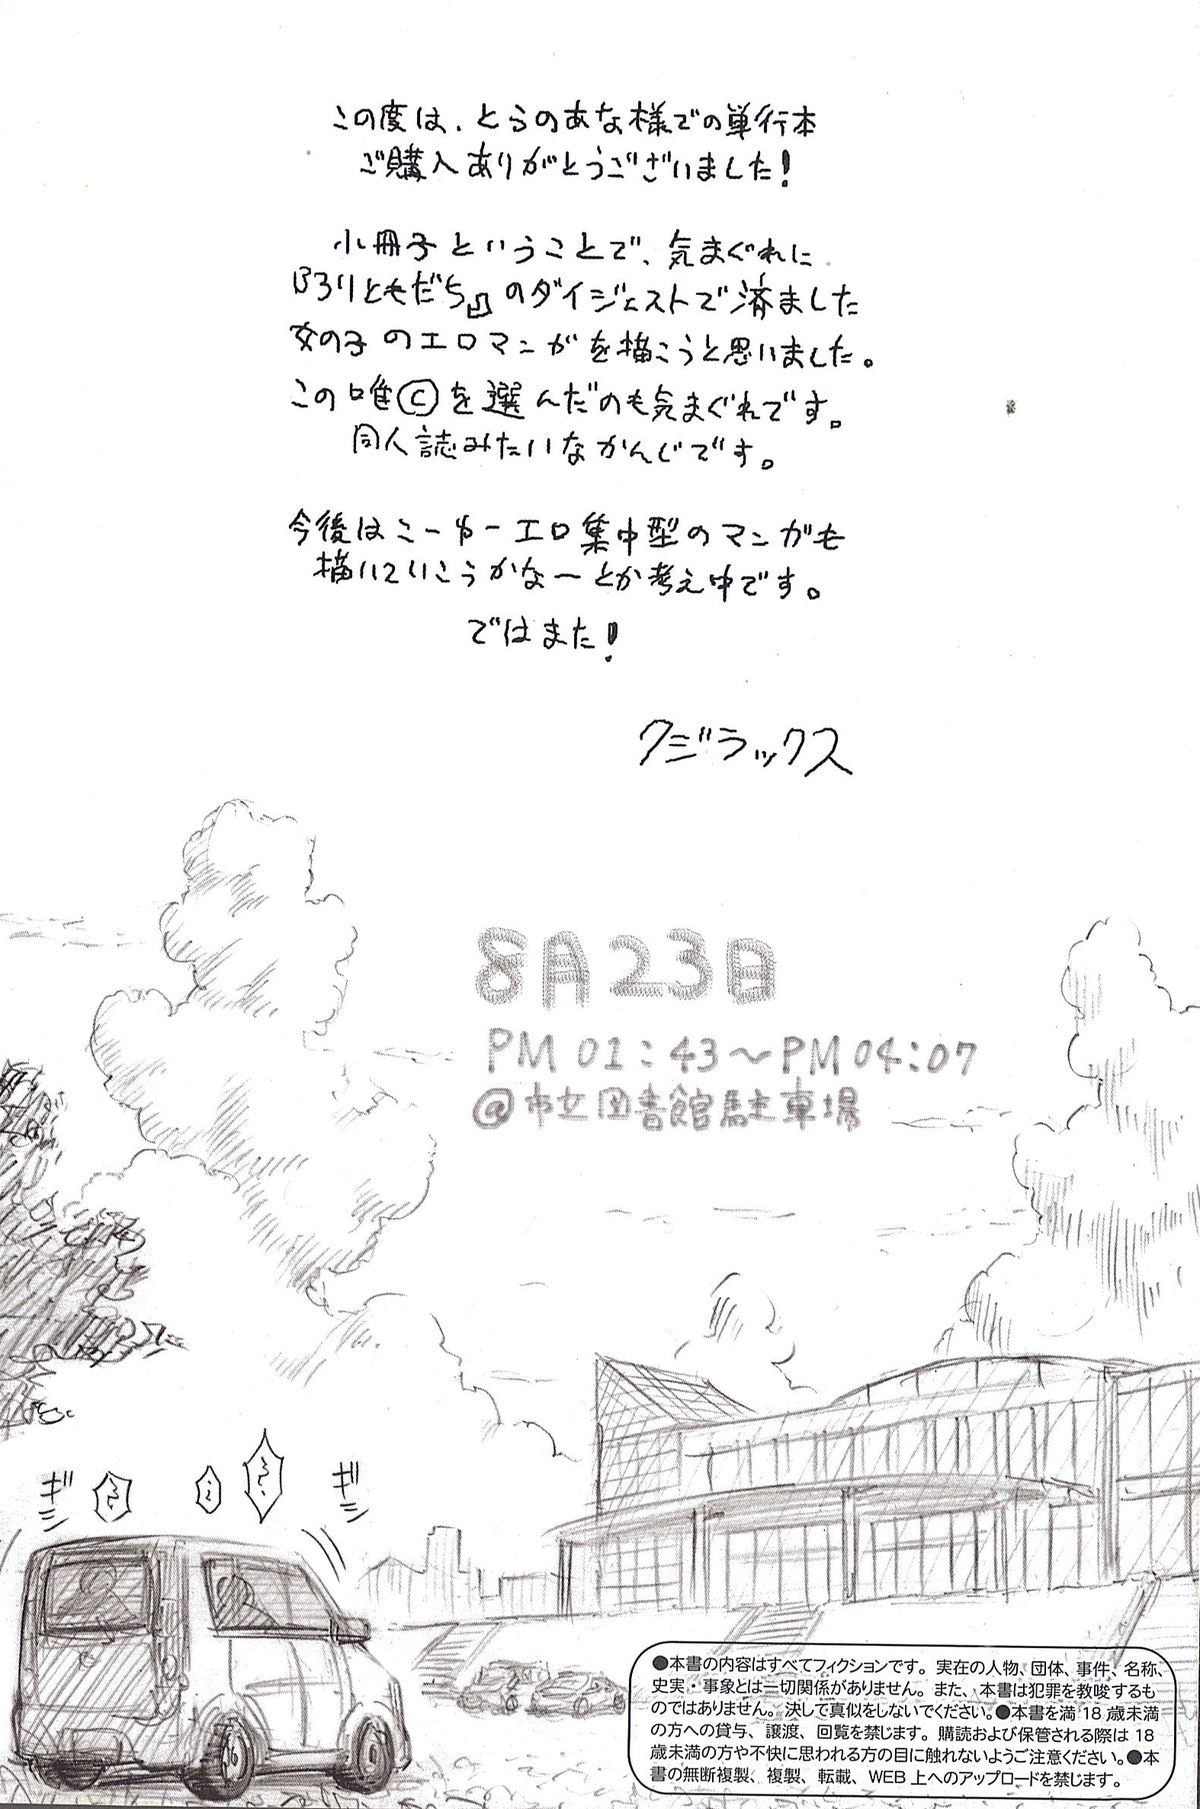 この度は、とらのあな様での単行本
ご購入ありがとうございました!
小冊子ということで、気まぐれに
『ろりともだち』のダイジェストで済ました
女の子のエロマンガを描こうと思いました。
この唯Ⓒを選んだのも気まぐれです。
同人誌みたいなかんじです。
今後はこーゆーエロ集中型のマンガも
描いていこうかなーとか考え中です。
ではまた!
クジラックス
8月23日
PM 01:43～PM 04:07
@市立図書館駐車場
ギシ
ギシ
●本書の内容はすべてフィクションです。実在の人物、団体、事件、名称、
史実・事象とは一切関係がありません。また、本書は犯罪を教唆するも
のではありません。決して真似をしないでください。●本書を満 18 歳未満
の方への貸与、譲渡、回覧を禁じます。購読および保管される際は 18
歳未満の方や不快に思われる方の目に触れないようご注意ください。●本
書の無断複製、複製、転載、WEB 上へのアップロードを禁じます。